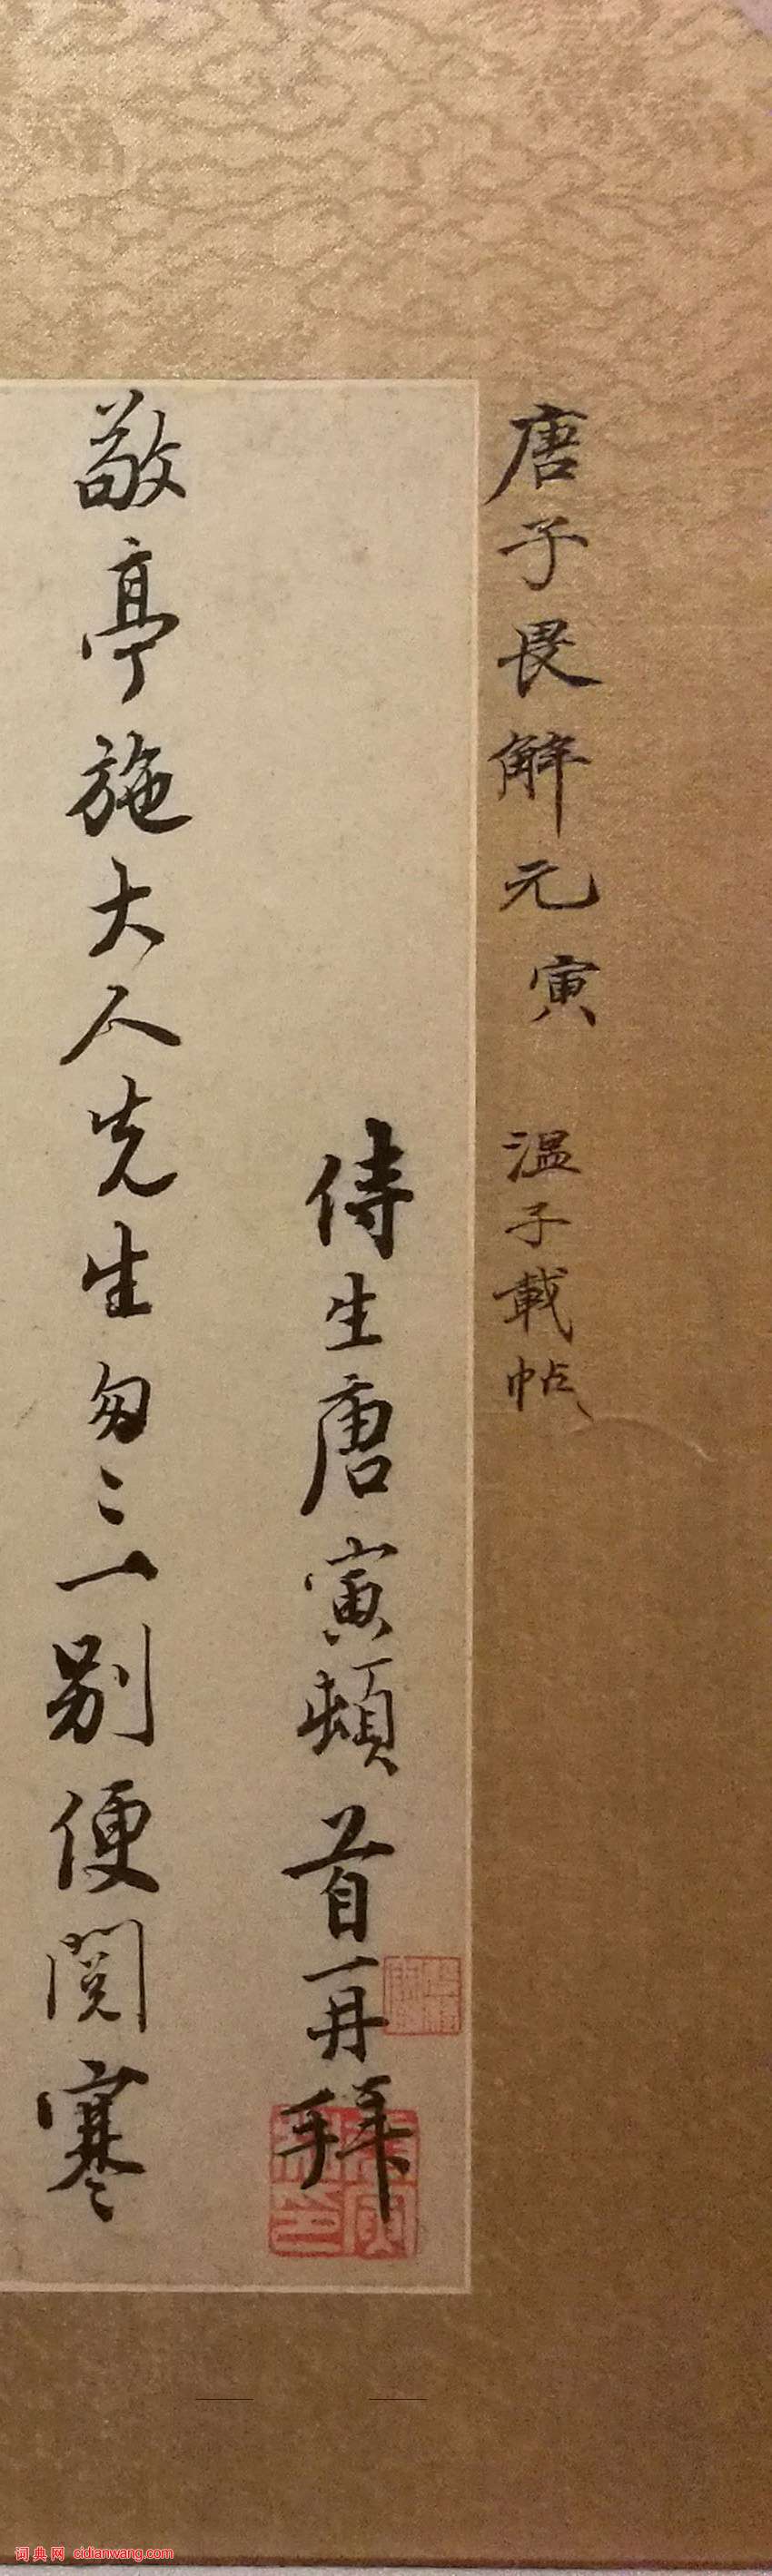 唐子畏解元寅 溫子載帖
侍生唐寅頓首再拜
敬亭施大人先生匆〻一別便閱寒
唐寅私印
词典网 cidianwang.com